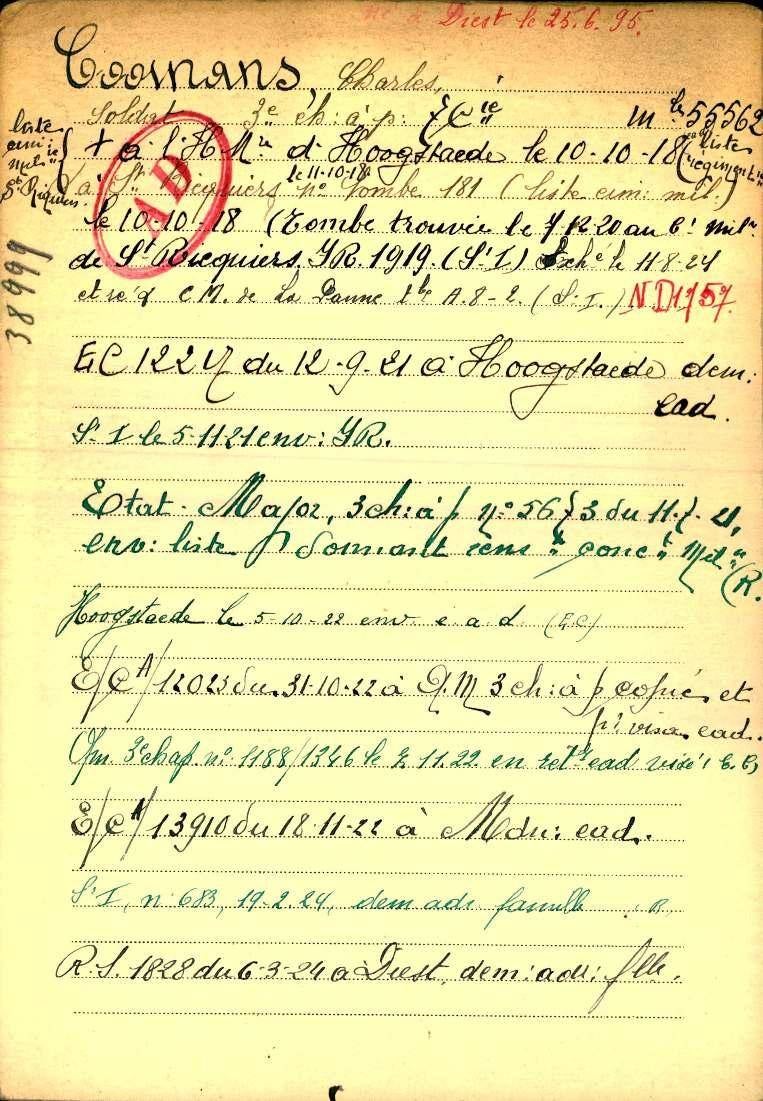 né à Diest le 25.6.95.
Coomans, Charles,
Soldat 3e ch: à p: 7 Cie mle 55562
+ à l'H Mre d'Hoogstaede le 10-10-18 (liste regiment")
liste cim: re mil: re St Riquiers
le 11-10-18
à St Ricquiers no Tombe 181 (liste cim: mil.)
AD
le 10-10-18 (Tombe trouvée le 7 12 20 au Ct milre
de St Ricquiers. JR. 1919. (S'I) Exhé le 11-8-24
et ré à C.M. de La Panne tbe A.8-2. (S.I.) ND1/57
38999
EC 1224 du 12-9-21 à Hoogstaede dem:
cad.
S. I le 5-11-21 env: JR.
Etat-Major, 3 ch: à p no 5673 du 11-7-21,
env: liste donnant rens ts conc t Milre
(R.
Hoogstaede le 5-10-22 env. c a d (E.C)
E/CA/12023 du 31-10-22 à QM 3 ch: à p. copiés et
pr visa cad.
Qm 3e chap. no 1188/1346 le 2.11.22 en retr cad visé (E.C)
E/CA/13910 du 18-11-22 à Mdu: cad.
S'I, no 683, 19-2.24, dem adr famille R
R.S. 1828 du 6-3-24 à Diest, dem: adr: flle.